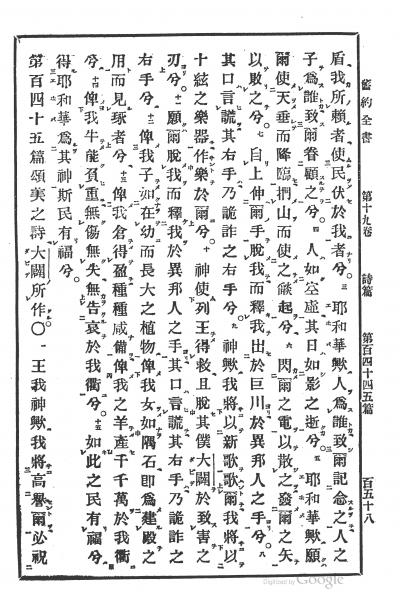 舊約全書　第十九卷　詩篇　第百四十四五篇　百五十八
盾我所賴者使民伏於我者兮。三耶和華歟人爲誰致爾記念之人之
子爲誰致爾眷顧之兮。四人如空虛其日如影之逝兮。五耶和華歟願
爾使天垂而降臨捫山而使之燄起兮。六閃爾之電以散之發爾之矢
以敗之兮。七自上伸爾手脫我而釋我出於巨川於異邦人之手兮。八
其口言謊其右手乃詭詐之右手兮。九神歟我將以新歌歌爾我將以
十絃之樂器作樂於爾兮。十神使列王得救且脫其僕大闢於致害之
刃兮。十一願爾脫我而釋我於異邦人之手其口言謊其右手乃詭詐之
右手兮。十二俾我子如在幼而長大之植物俾我女如隅石卽爲建殿之
用而見琢者兮。十三俾我倉得盈種種咸備俾我之羊產千千萬於我衢
兮。十四俾我牛能負重無傷無失無告哀於我衢兮。十五如此之民有福兮
得耶和華爲其神斯民有福兮。
第百四十五篇頌美之詩大闢所作〇一王我神歟我將高譽爾必祝
Digitized by Google